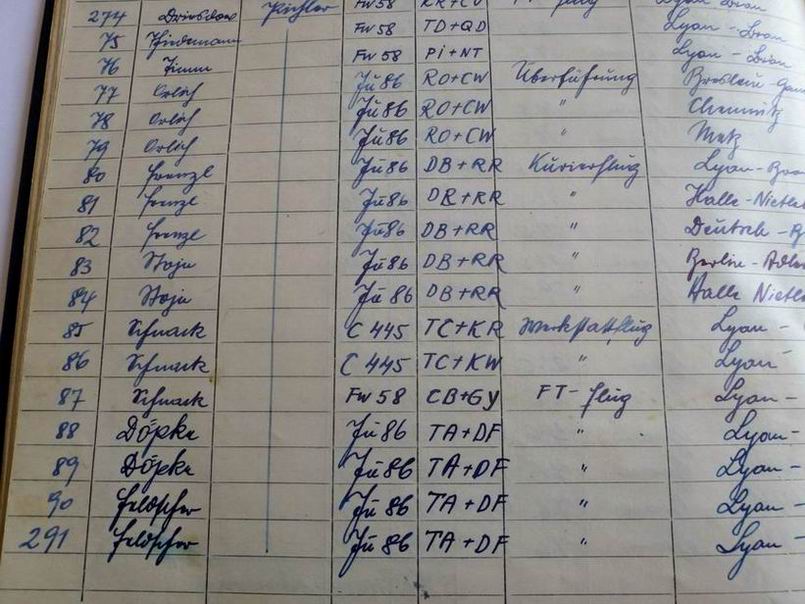 274 Pichler Fw 58 Lyon - Bron
75 Fw 58 TD+QD Lyon - Bron
76 Fw 58 Pi+NT Lyon - Bron
77 Orlich Ju 86 RO+CW Überführung Breslau -
78 Orlich Ju 86 RO+CW " Chemnitz
79 Orlich Ju 86 RO+CW " Metz
80 Frenzl Ju 86 DB+RR Kurierflug Lyon - Bro
81 Frenzl Ju 86 DB+RR " Halle - Nietle
82 Frenzl Ju 86 DB+RR " Deutsch - B
83 Ju 86 DB+RR " Berlin - Adle
84 Ju 86 DB+RR " Halle Nietl
85 Schnack C 445 TC+KR Werkstattflug Lyon -
86 Schnack C 445 TC+KW " Lyon -
87 Schnack Fw 58 CB+Gy FT - flug Lyon -
88 Döpke Ju 86 TA+DF " Lyon -
89 Döpke Ju 86 TA+DF " Lyon -
90 Feldscher Ju 86 TA+DF " Lyon -
291 Feldscher Ju 86 TA+DF " Lyon -